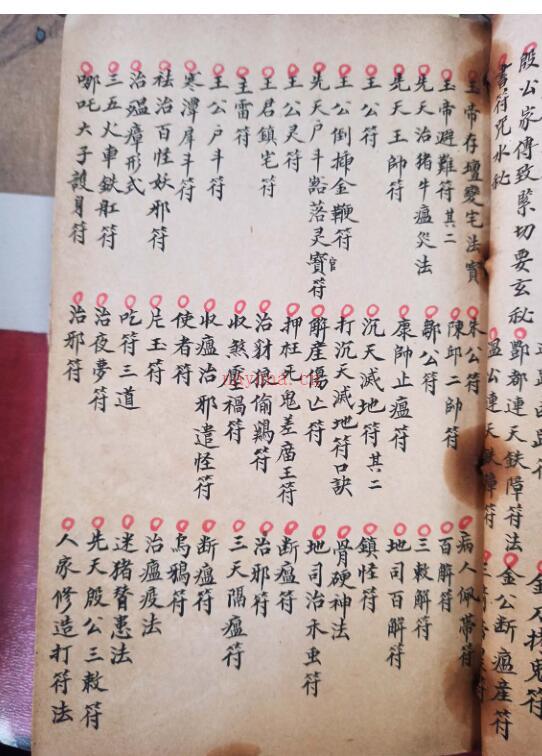 殷公家傳致緊切要玄秘
書符咒水秘
酆都連天鉄障符法
温公連天鉄障符
金公断瘟産符
玉帝存壇變宅法寶
玉帝避難符其二
先天治猪牛瘟災法
先天王帥符
王公符
王公倒插金鞭符官
先天户斗豁落灵寳符
王公灵符
王君鎮宅符
玉雷符
王公户斗符
寒潭犀斗符
祛治百怪妖邪符
治瘟瘴形式
三五火車鉄肛符
哪吒大子護身符
朱公符
陳邱二帥符
鄒公符
康帥止瘟符
沉天滅地符其二
打沉天滅地符口訣
解産傷亡符
押枉死鬼差庙王符
治豺狼偷鶏符
收煞壓禍符
收瘟治邪遣怪符
使者符
片玉符
吃符三道
治夜夢符
治邪符
病人佩帶符
百解符
三敕解符
地司百解符
鎮怪符
骨硬神法
地司治禾虫符
断瘟符
治邪符
三天隔瘟符
断瘟符
烏鴉符
治瘟疫法
迷猪瞽患法
先天殷公三敕符
人家修造打符法